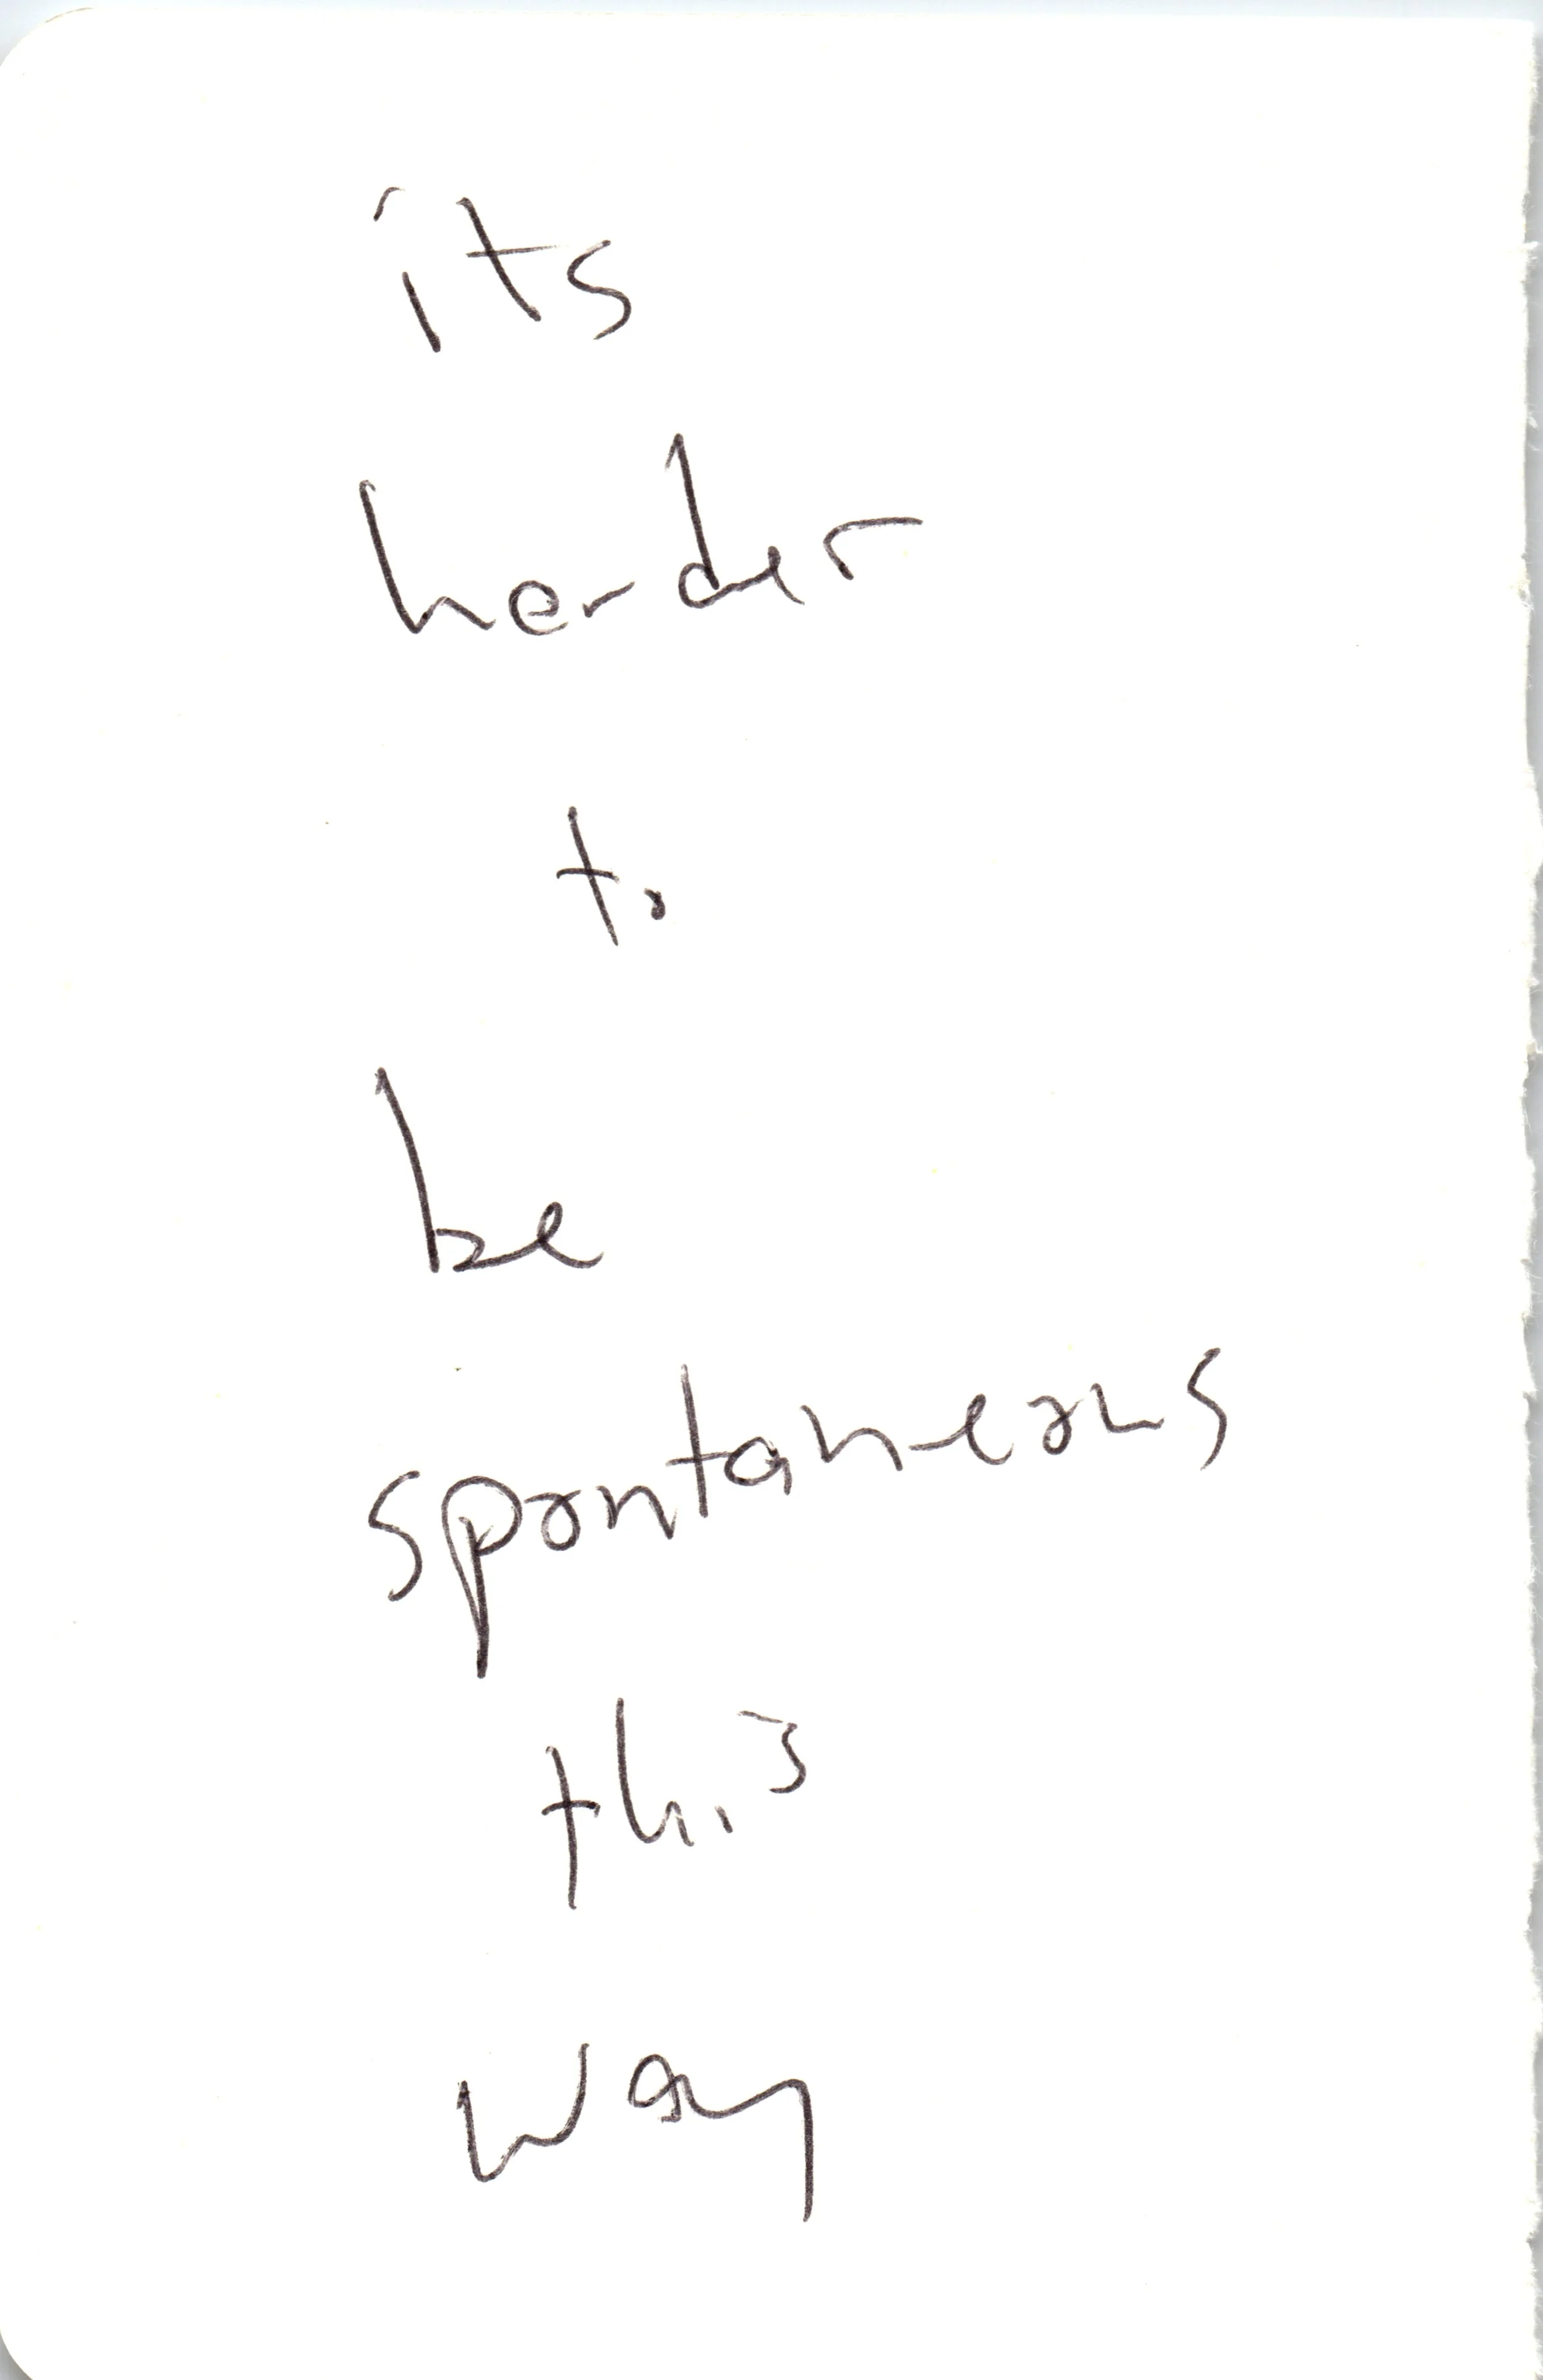 its
harder
to
be
spontaneous
this
way